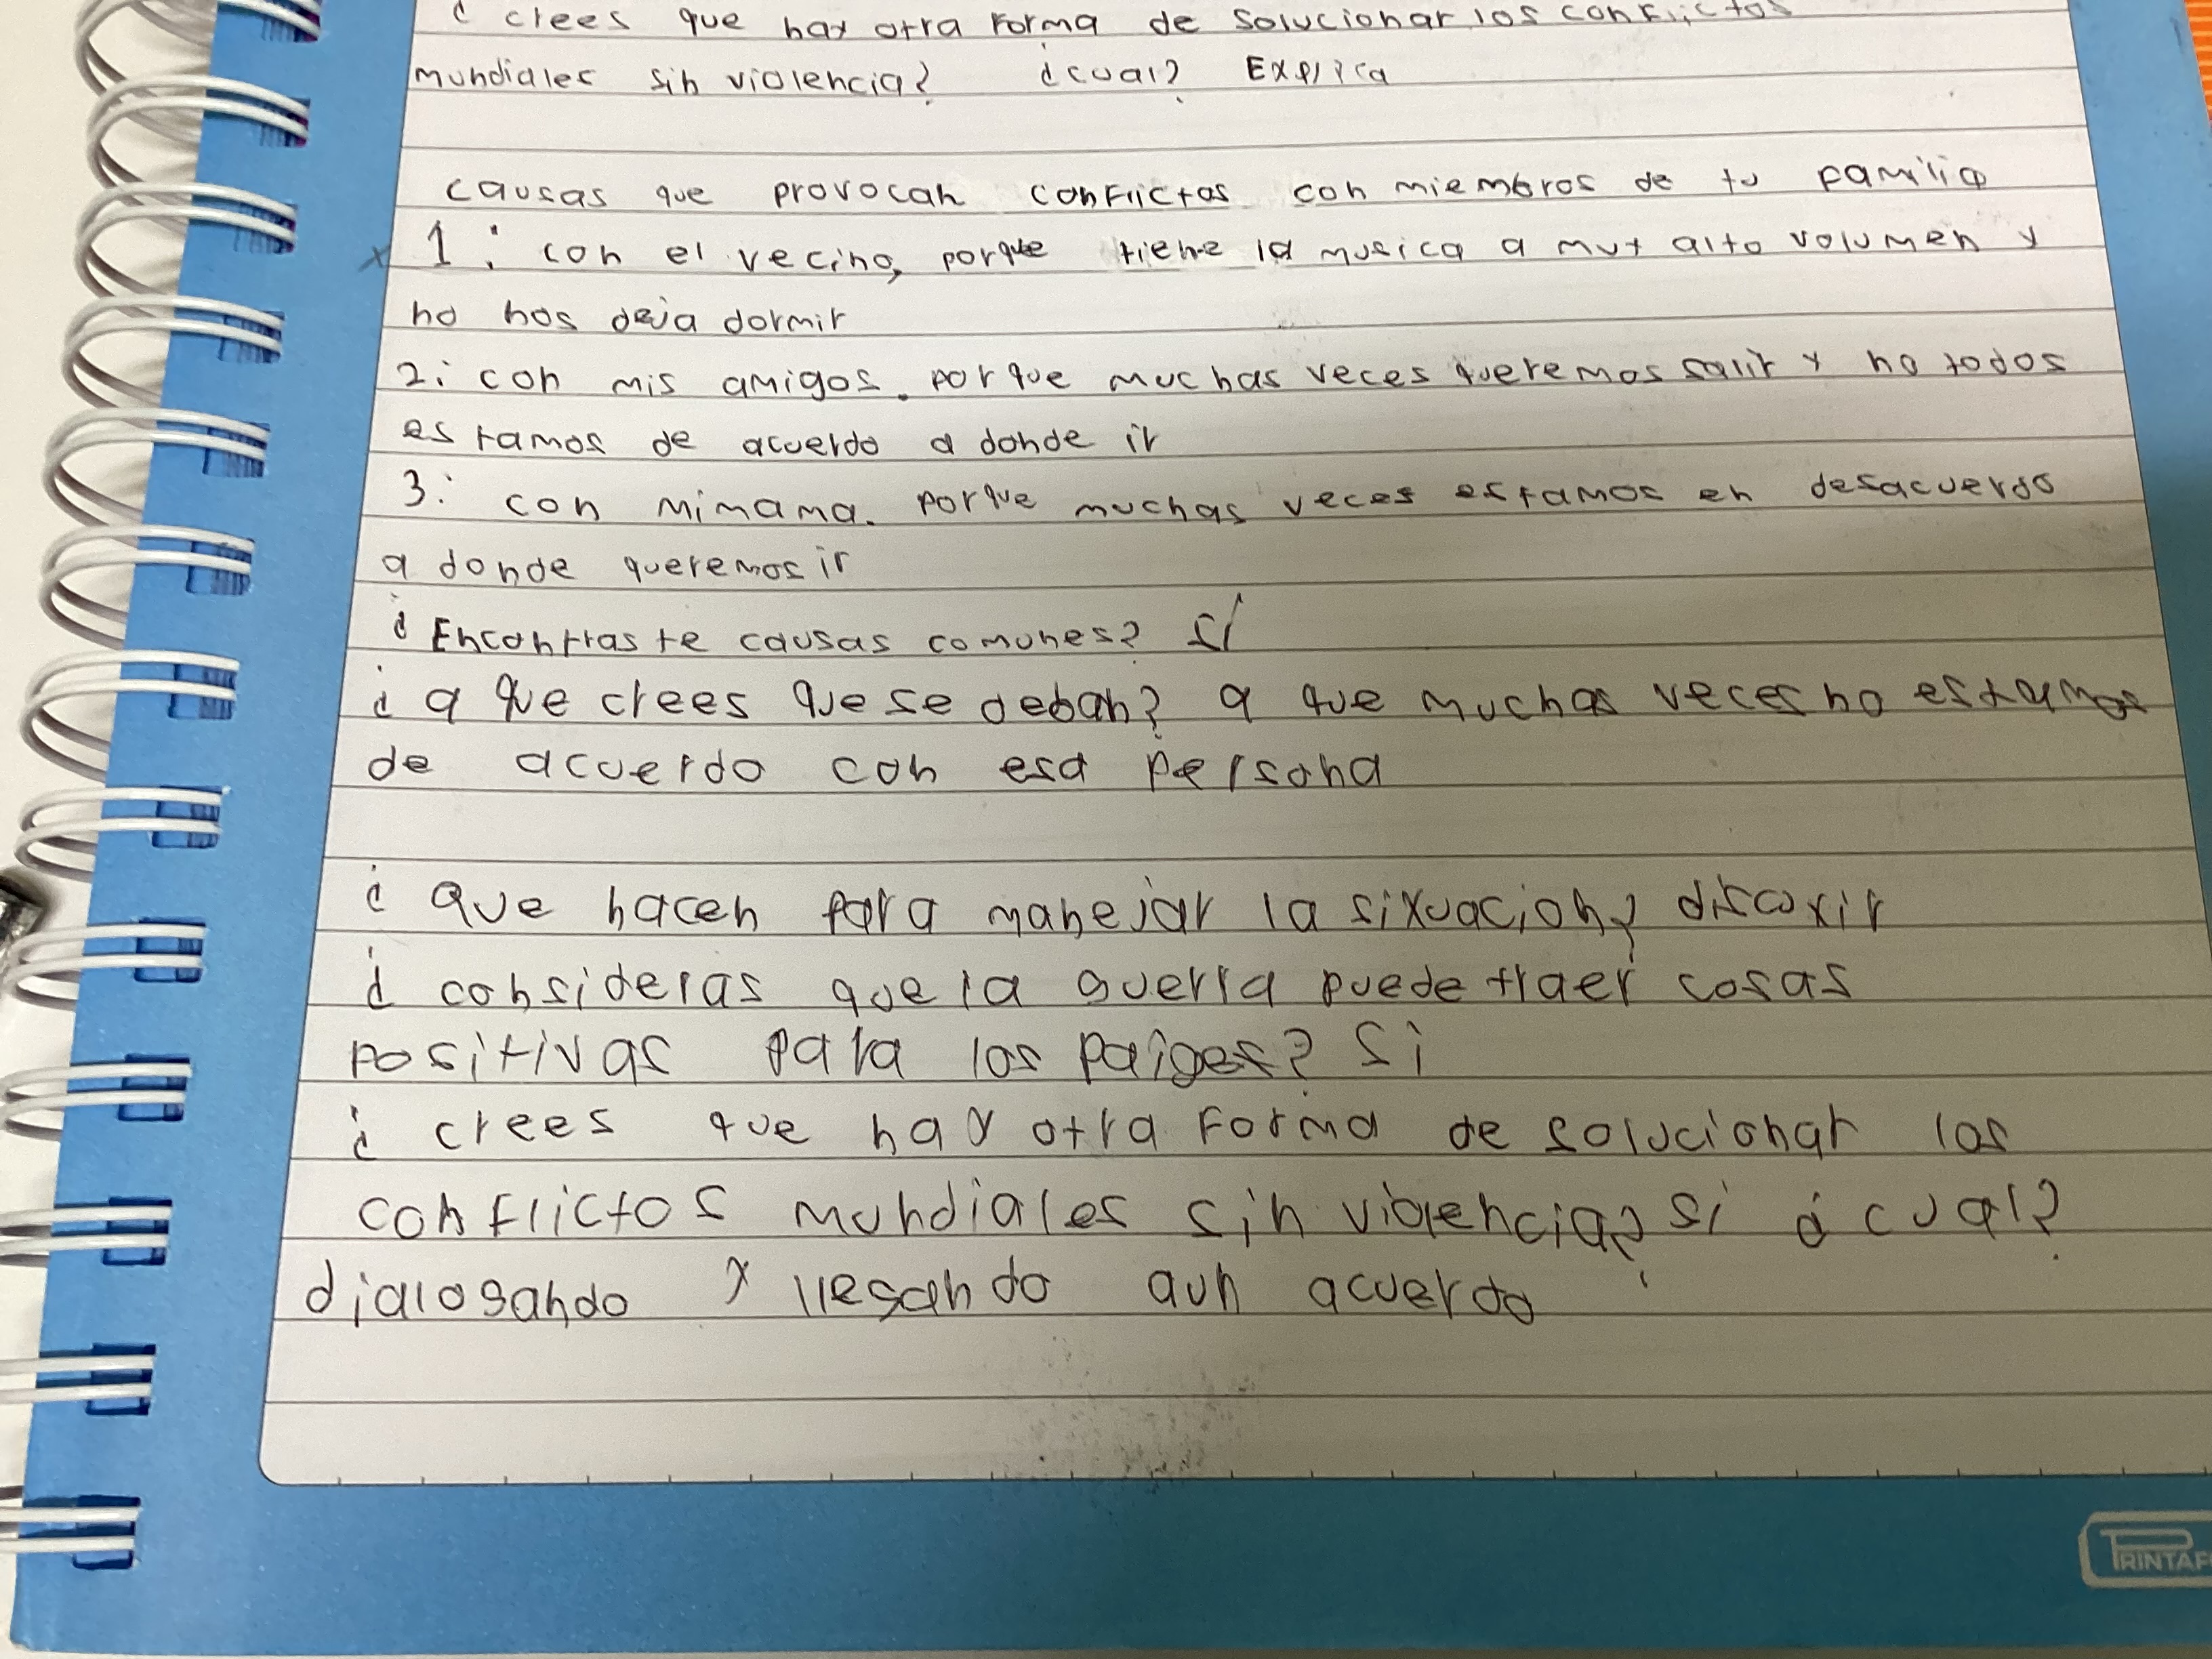 ¿ crees que hay otra forma de solucionar los conflictos
mundiales sin violencia? ¿cual? Explica
causas que provocan conflictos con miembros de tu familia
1: con el vecino, porque tiene la musica a muy alto volumen y
no nos deja dormir
2: con mis amigos. porque muchas veces queremos salir y no todos
estamos de acuerdo a donde ir
3: con mi mama. porque muchas veces estamos en desacuerdo
a donde queremos ir
¿Encontraste causas comunes? sí
¿a que crees que se deban? a que muchas veces no estamos
de acuerdo con esa persona
¿que hacen para manejar la situacion? discutir
¿consideras que la guerra puede traer cosas
positivas para los paises? si
¿crees que hay otra forma de solucionar los
conflictos mundiales sin violencia? si ¿cual?
dialogando y llegando aun acuerdo